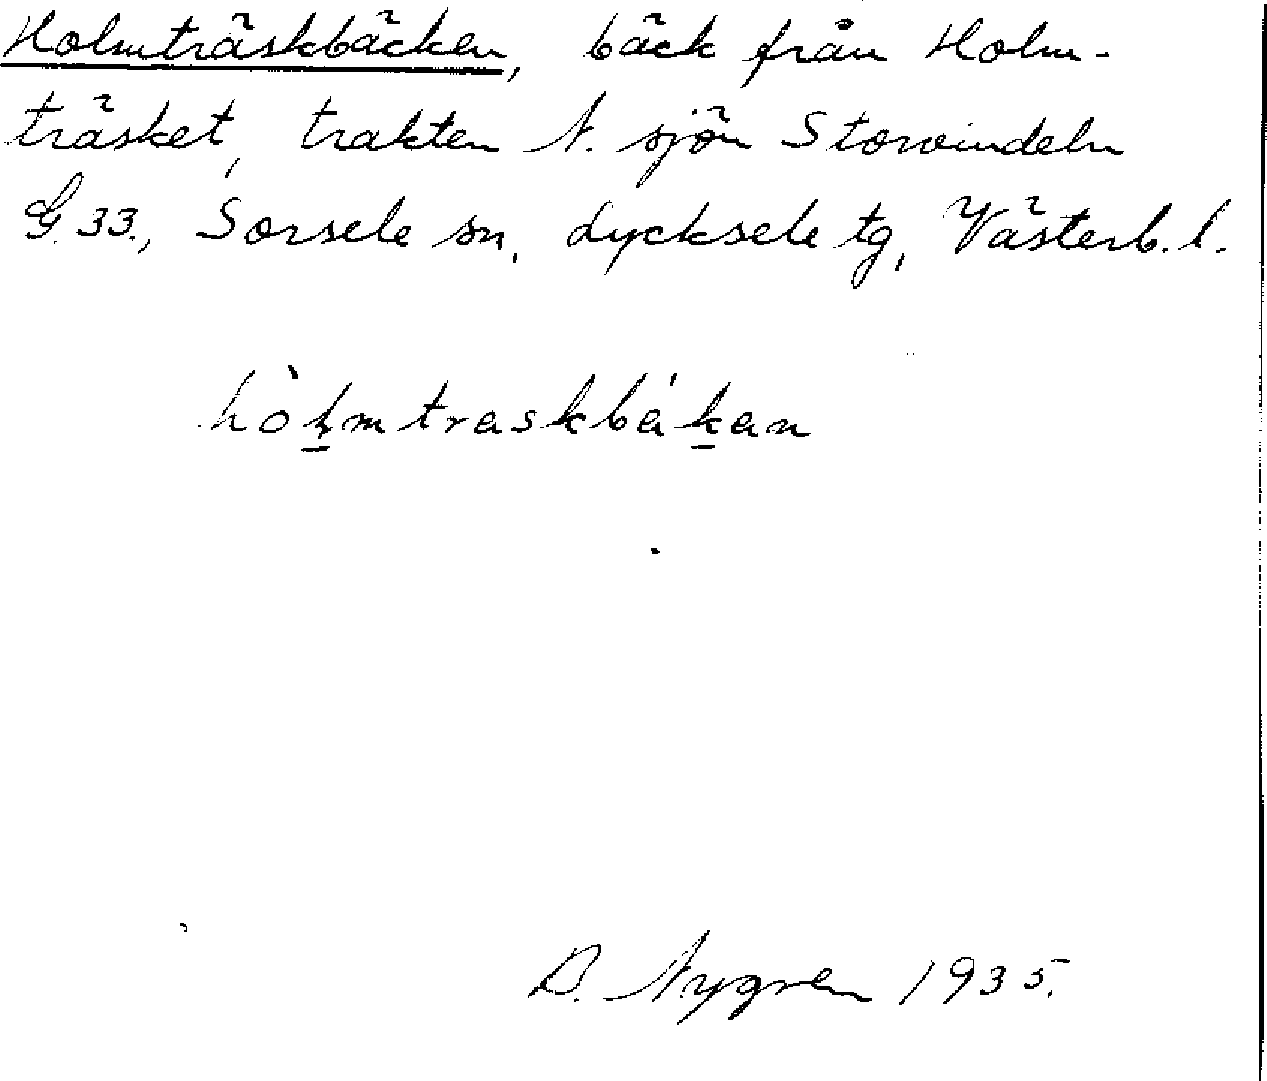 Holmträskbäcken, bäck från Holm-
träsket, trakten N. sjön Storvindeln
G. 33., Sorsele sn, Lycksele tg, Västerb. l.
hòl̠mtraskbák̠an
D. Nygren 1935.